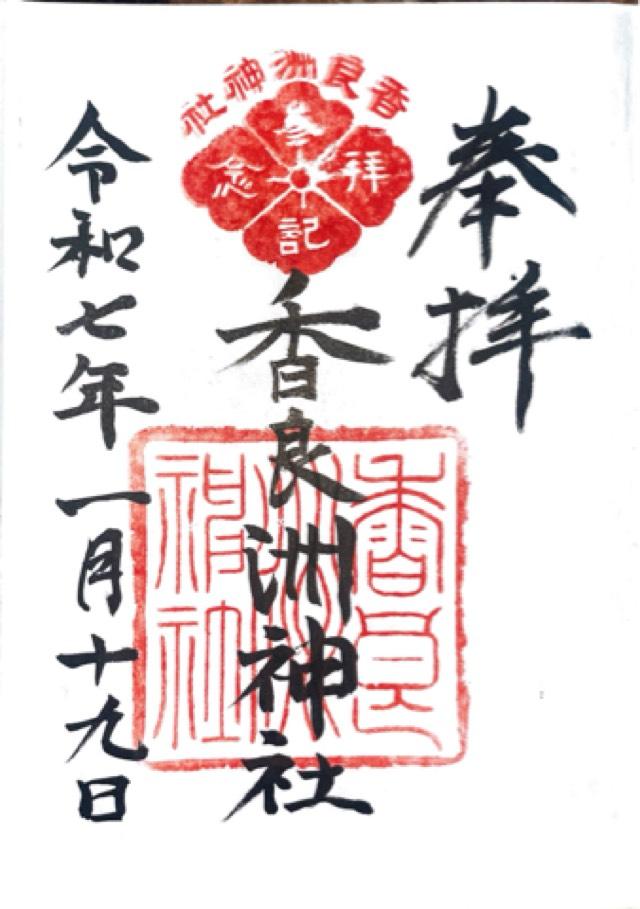 奉拝
香良洲神社
参拝記念
香良洲神社
香良洲神社
令和七年一月十九日